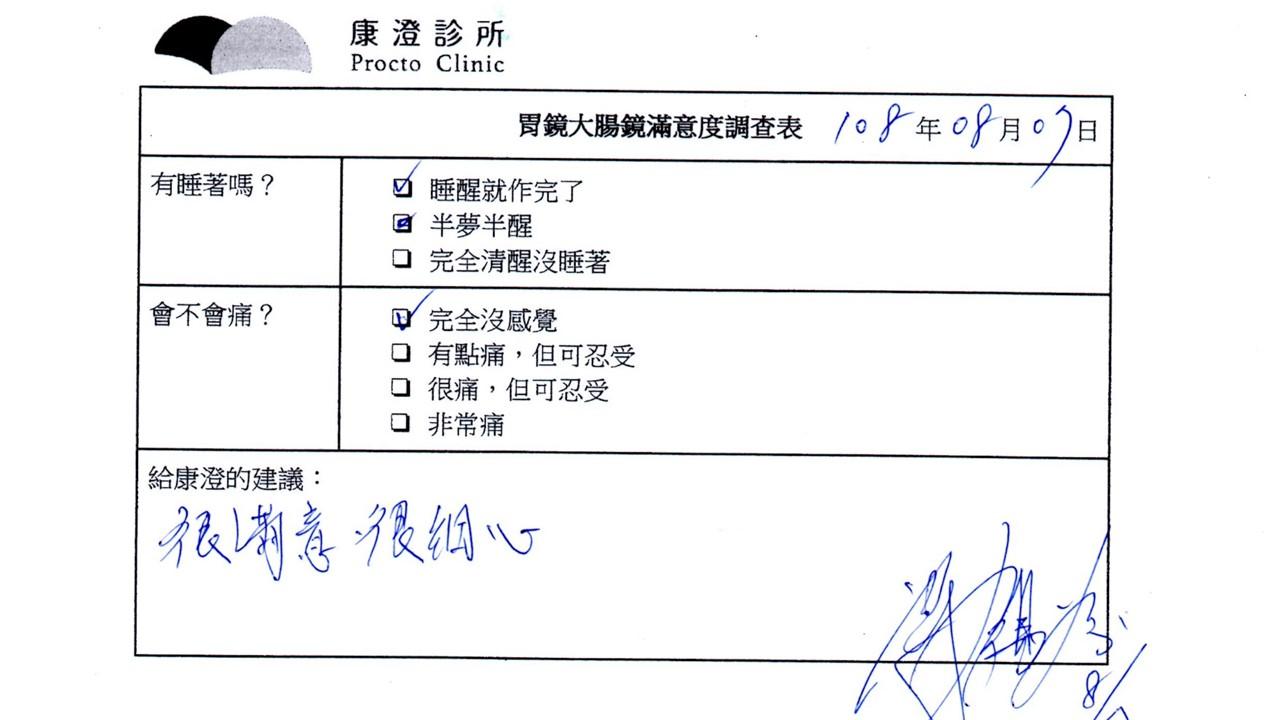 康澄診所
Procto Clinic
胃鏡大腸鏡滿意度調查表 108年08月07日
有睡著嗎？
睡醒就作完了
半夢半醒
完全清醒沒睡著
會不會痛？
完全沒感覺
有點痛，但可忍受
很痛，但可忍受
非常痛
給康澄的建議：
很滿意 很細心
8/7